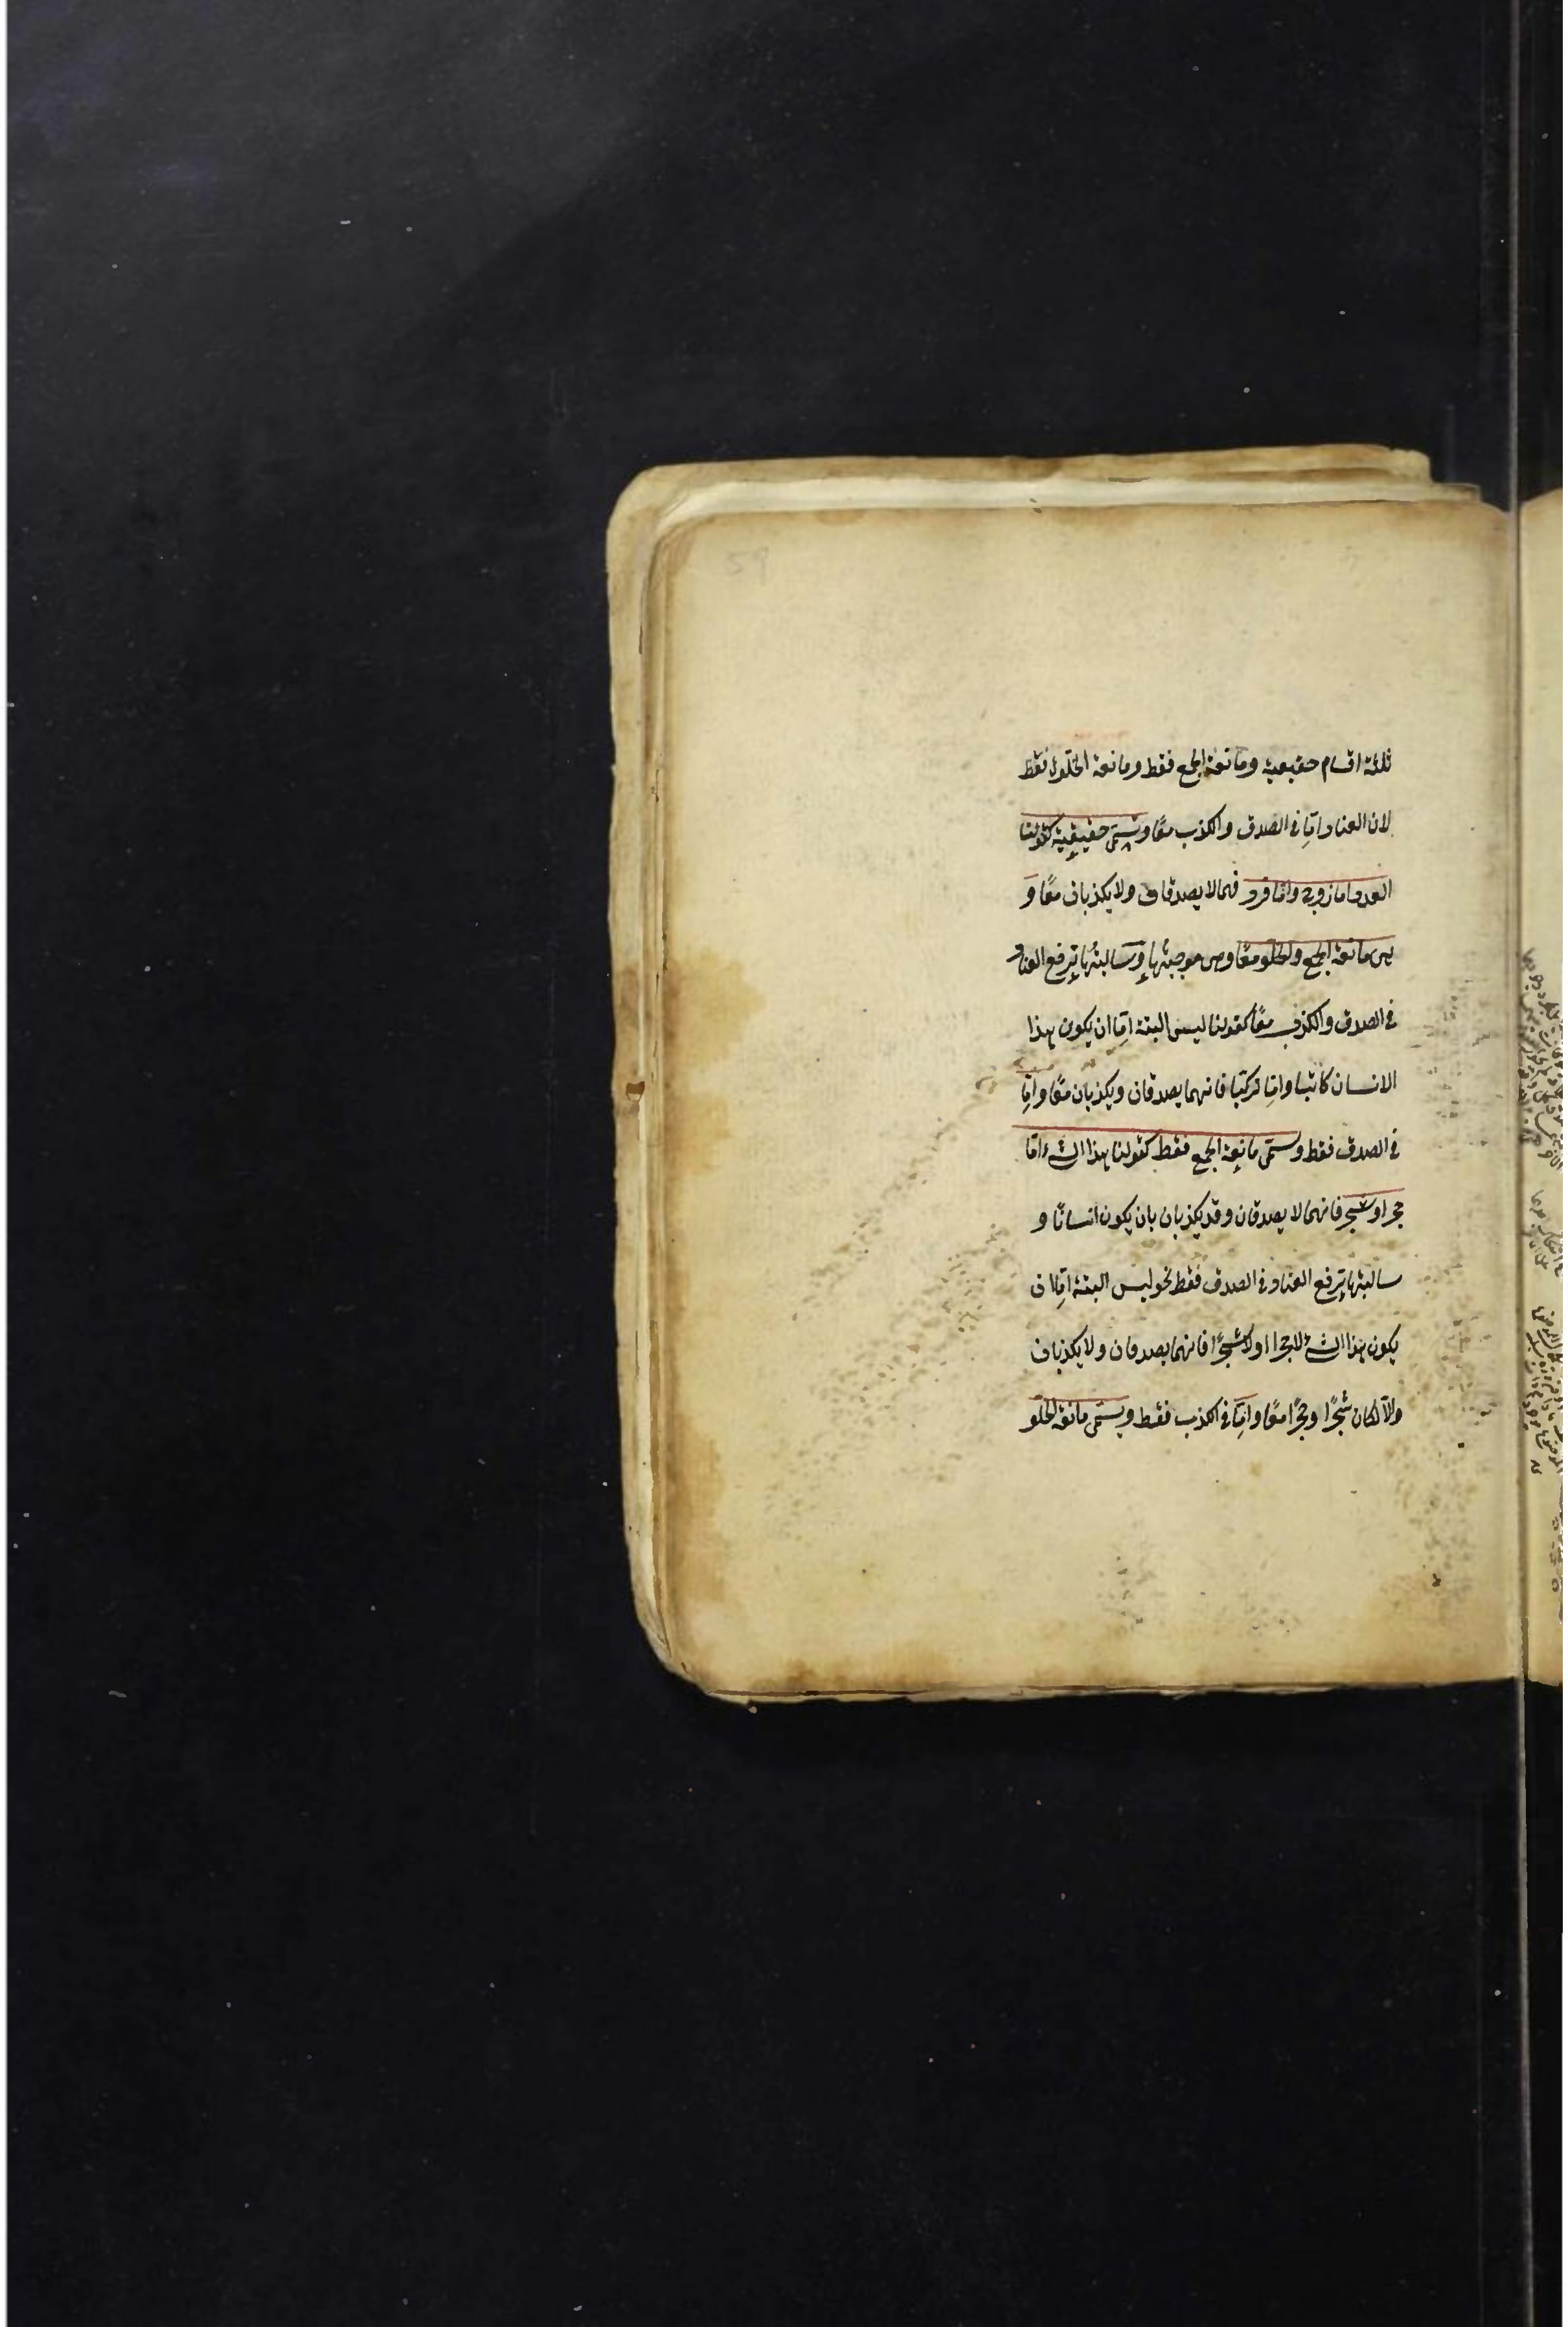 ثلثة اقسام حقيقية ومانعة الجمع فقط ومانعة الخلو فقط
لان العناد اما فى الصدق والكذب معًا وتسمى حقيقية كقولنا
العدد اما زوج واما فرد فهما لا يصدقان ولا يكذبان معًا و
هى مانعة الجمع والخلو معًا وهى موجبتها وسالبتها برفع العناد
فى الصدق والكذب معًا كقولنا ليس البتة اما ان يكون هذا
الانسان كاتبا واما تركيا فانهما يصدقان ويكذبان معًا واما
فى الصدق فقط وتسمى مانعة الجمع فقط كقولنا هذا الشئ اما
حجر او شجر فانهما لا يصدقان وقد يكذبان بان يكون انسانًا و
سالبتها برفع العناد فى الصدق فقط نحو ليس البتة اما ان
يكون هذا الشئ لا حجرا او لا شجرًا فانهما يصدقان ولا يكذبان
والا لكان شجرًا وحجرًا معًا واما فى الكذب فقط ويسمى مانعة الخلو
59